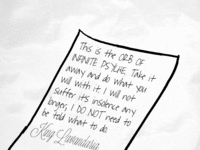 This is the ORB OF
INFINITE PSYCHE. Take it
away and do what you
will with it. I will not
suffer its insolence any
longer, I DO NOT need to
be told what to do